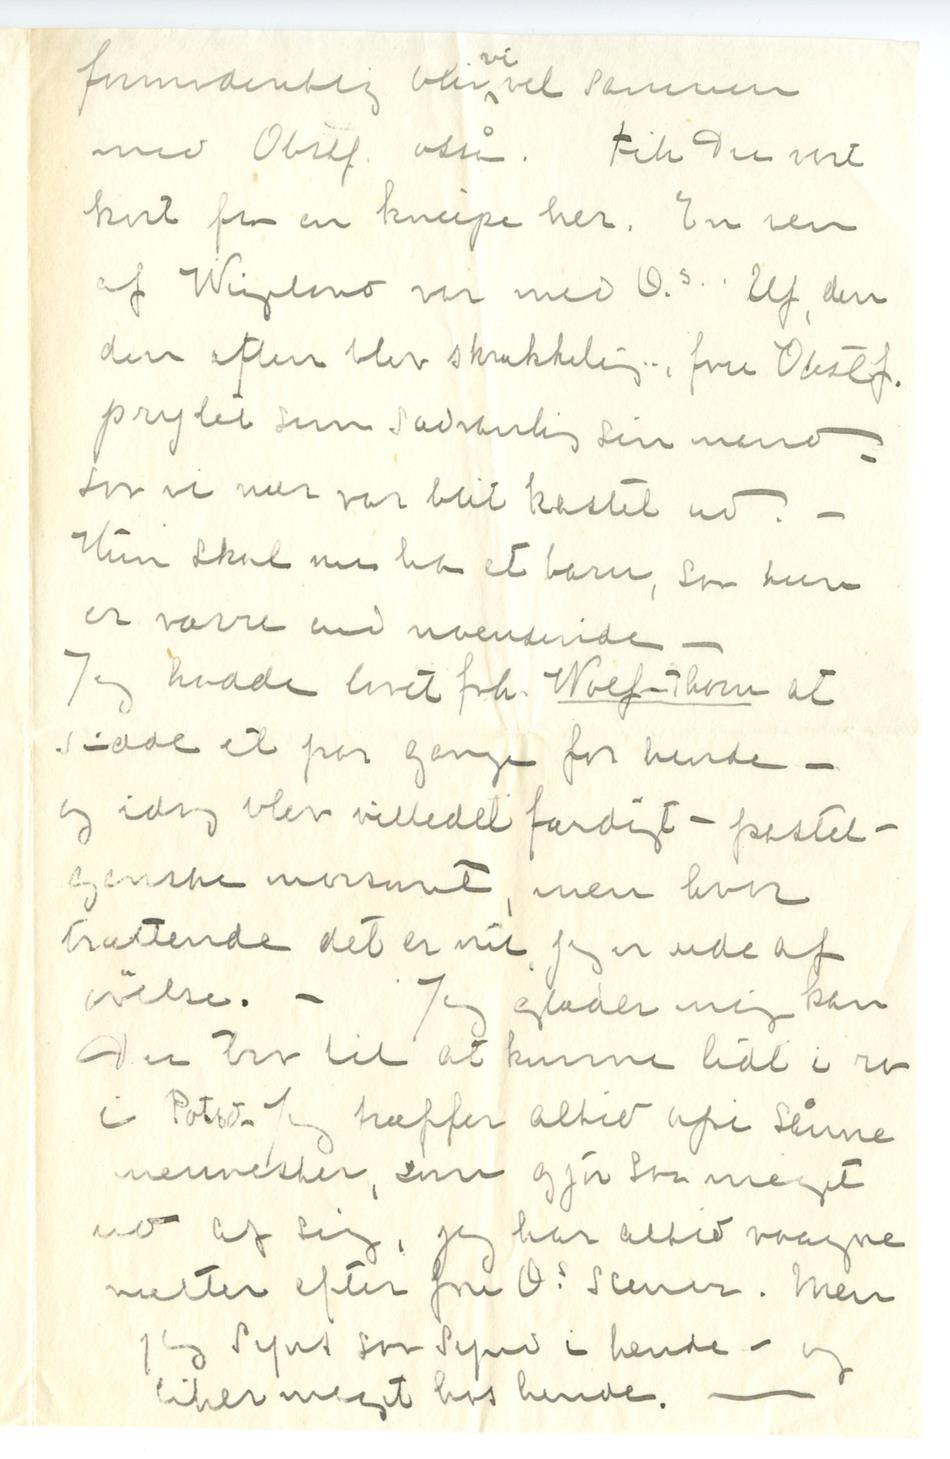 formodentlig blir vi vel sammen
med Obstf. osså. Fik Du vort
kort fra en kneipe her. En ven
af Wigeland var med O.s.. Uf, den
den aften blev skrækkelig.., fru Obstf.
prylet som sædvanlig sin mand –
saa vi nær var blit kastet ud. –
Hun skal nu ha et barn, saa hun
er værre end noensinde –
Jeg hadde lovet frk. Wolf-Thorn at
sidde et par gange for hende –
og idag blev billedet færdigt – pastel –
ganske morsomt, men hvor
trættende det er nu, jeg er ude af
övelse. – Jeg glæder mig kan
Du tro til at kunne lidt i ro
i Potsd. Jeg træffer altid opi sånne
mennesker, som gjør saa meget
ud af sig, jeg har altid vaagne
nætter efter fru O.s scener. Men
jeg synes saa synd i hende – og
liker meget hos hende. —